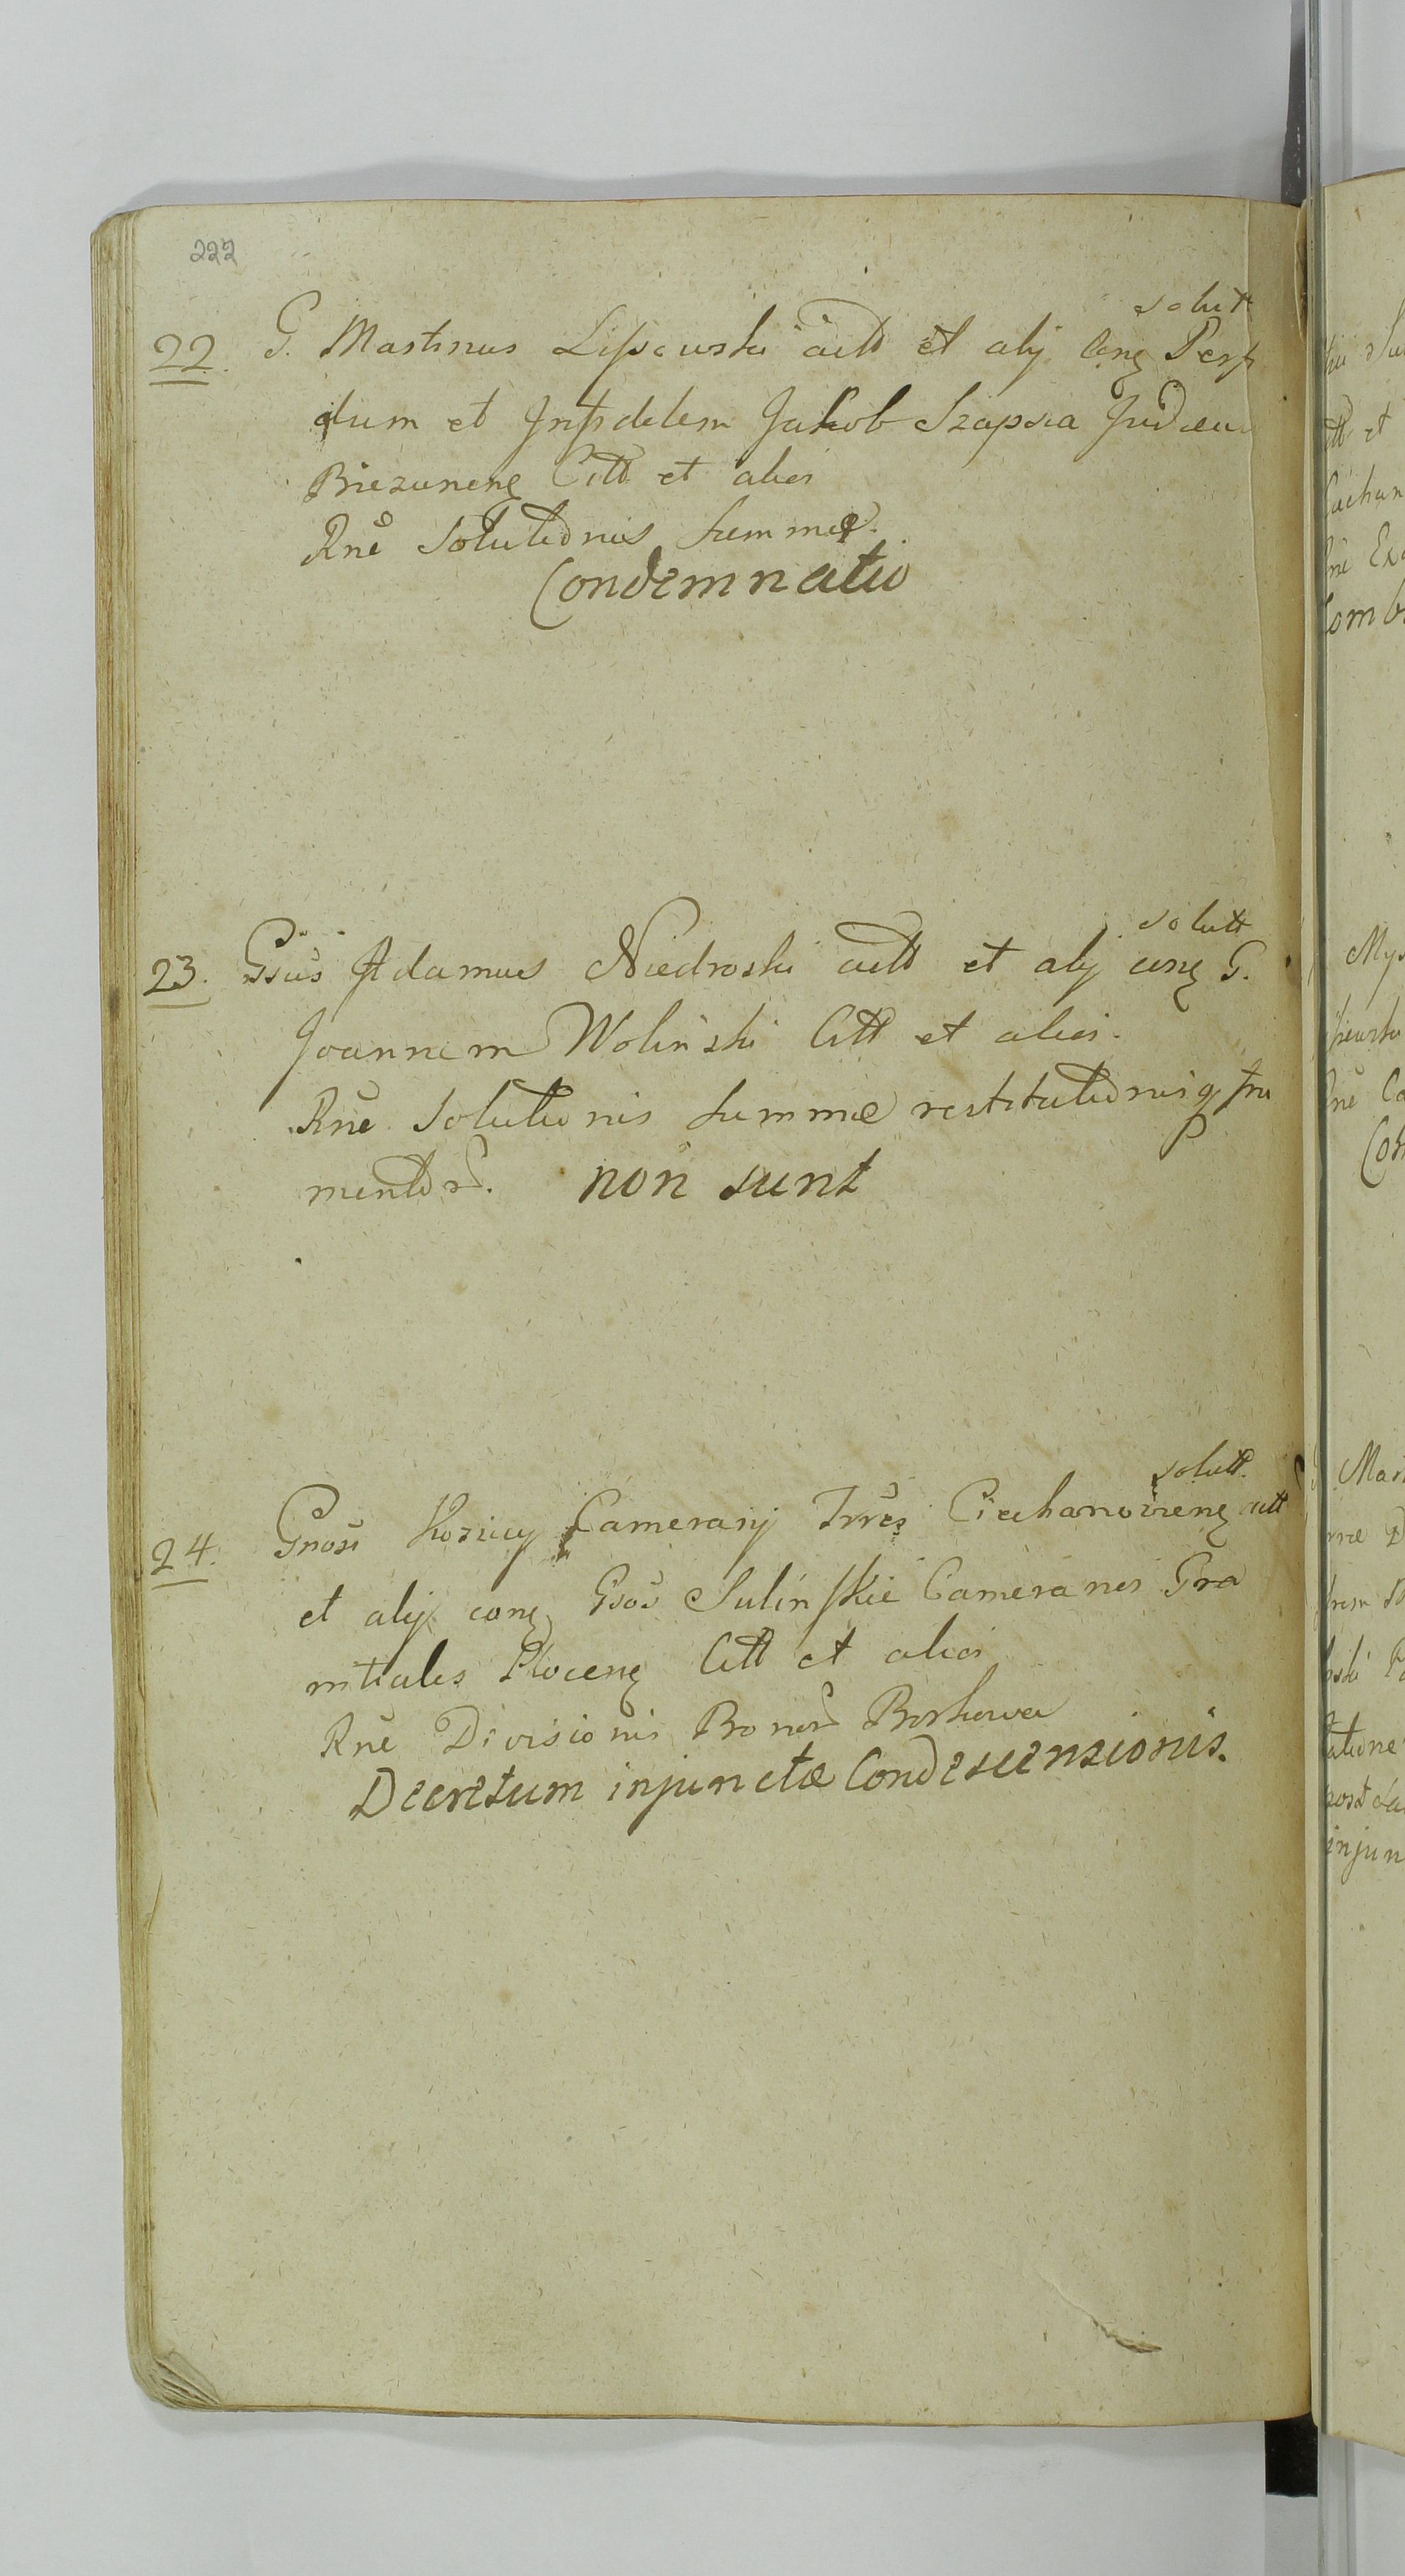 222
solutt
22. G. Martinus Lipowski actt et alij conq Perfi
dum et Infidelem Jakob Szapsia Judæum
Biezunenq Citt et alios
Rnē Solutionis Summæ.
Condemnatio
solutt
23. Gsus Adamus Niedroski actt et alij conq G.
Joannem Wolinski Citt et alios.
Rnē Solutionis Summæ restitutionisq fru
mentor. non sunt
solutt
24. Gnosi Kozicy Camerarij Trrēs Ciechanovienq actt
et alij conq Gsos Sulinskie Camerarios Gra
nitiales Plocenq Citt et alios
Rnē Divisionis Bonor Borkowa
Decretum injunctæ Condescensionis.